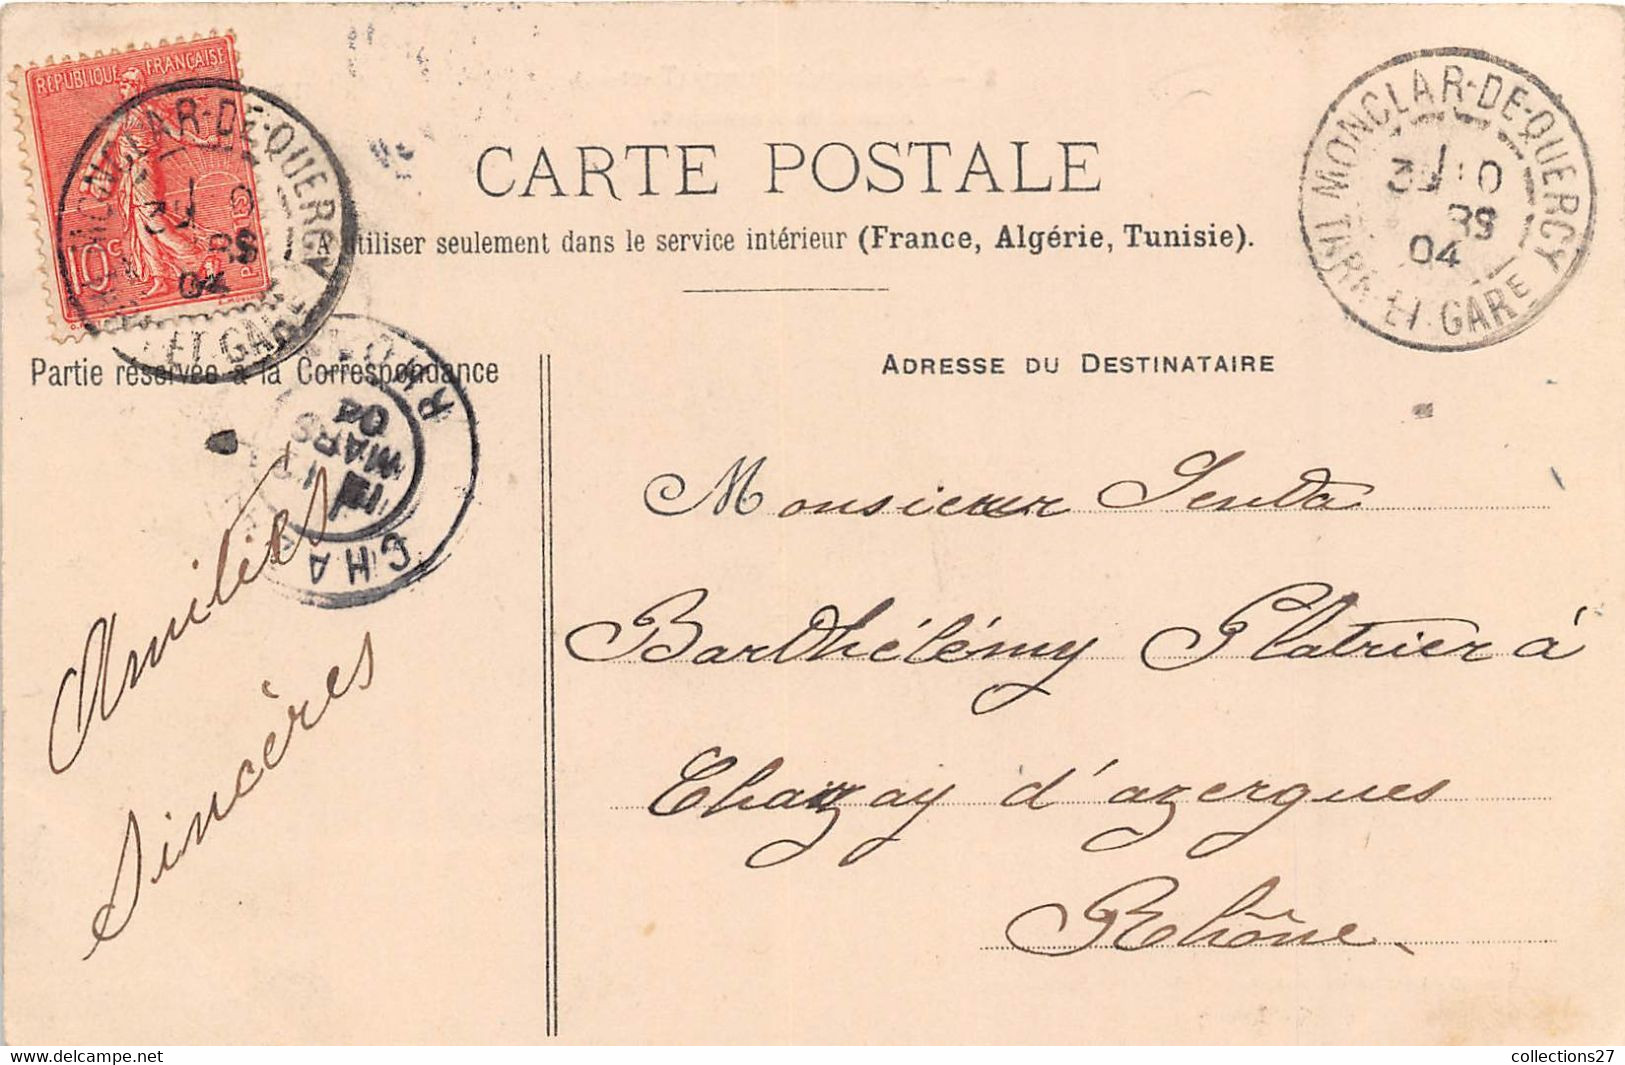 RÉPUBLIQUE FRANÇAISE
10c
POSTES
MONCLAR-DE-QUERCY
04
ET-GARE
MONCLAR-DE-QUERCY
04
TARN-ET-GARE
CARTE POSTALE
A utiliser seulement dans le service intérieur (France, Algérie, Tunisie).
Partie réservée à la Correspondance
ADRESSE DU DESTINATAIRE
CHA
11
MARS
04
RHÔNE
Amitiés
Sincères
Monsieur
Barthélémy Platrier à
Chazay d'azergues
Rhône
collections27